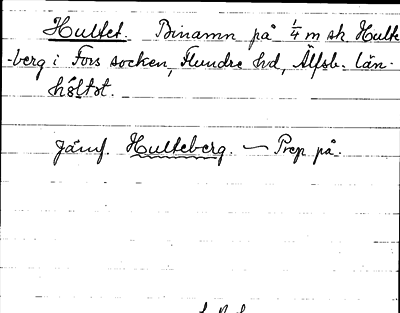 Hultet. Binamn på 1/4 m sk Hulte
-berg i Fors socken, Flundre hd, Älfsb. län.
hôltət.
Jämf. Hulteberg. — Prep på.